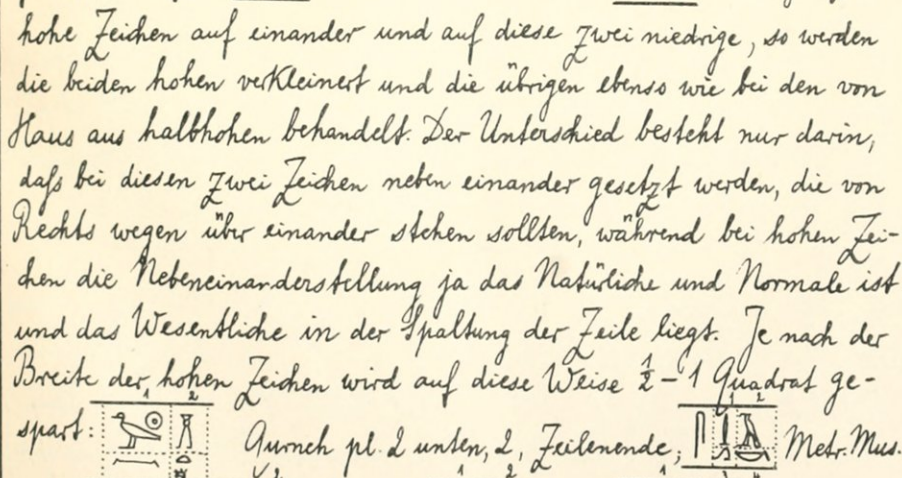 hohe Zeichen auf einander und auf diese zwei niedrige, so werden
die beiden hohen verkleinert und die übrigen ebenso wie bei den von
Haus aus halbhohen behandelt. Der Unterschied besteht nur darin,
daſs bei diesen zwei Zeichen neben einander gesetzt werden, die von
Rechts wegen über einander stehen sollten, während bei hohen Zei-
chen die Nebeneinanderstellung ja das Natürliche und Normale ist
und das Wesentliche in der Spaltung der Zeile liegt. Je nach der
Breite der hohen Zeichen wird auf diese Weise ½ – 1 Quadrat ge-
spart: 1 2 Qurneh pl. 2 unten, 2, Zeilenende; 1 2 Metr. Mus.